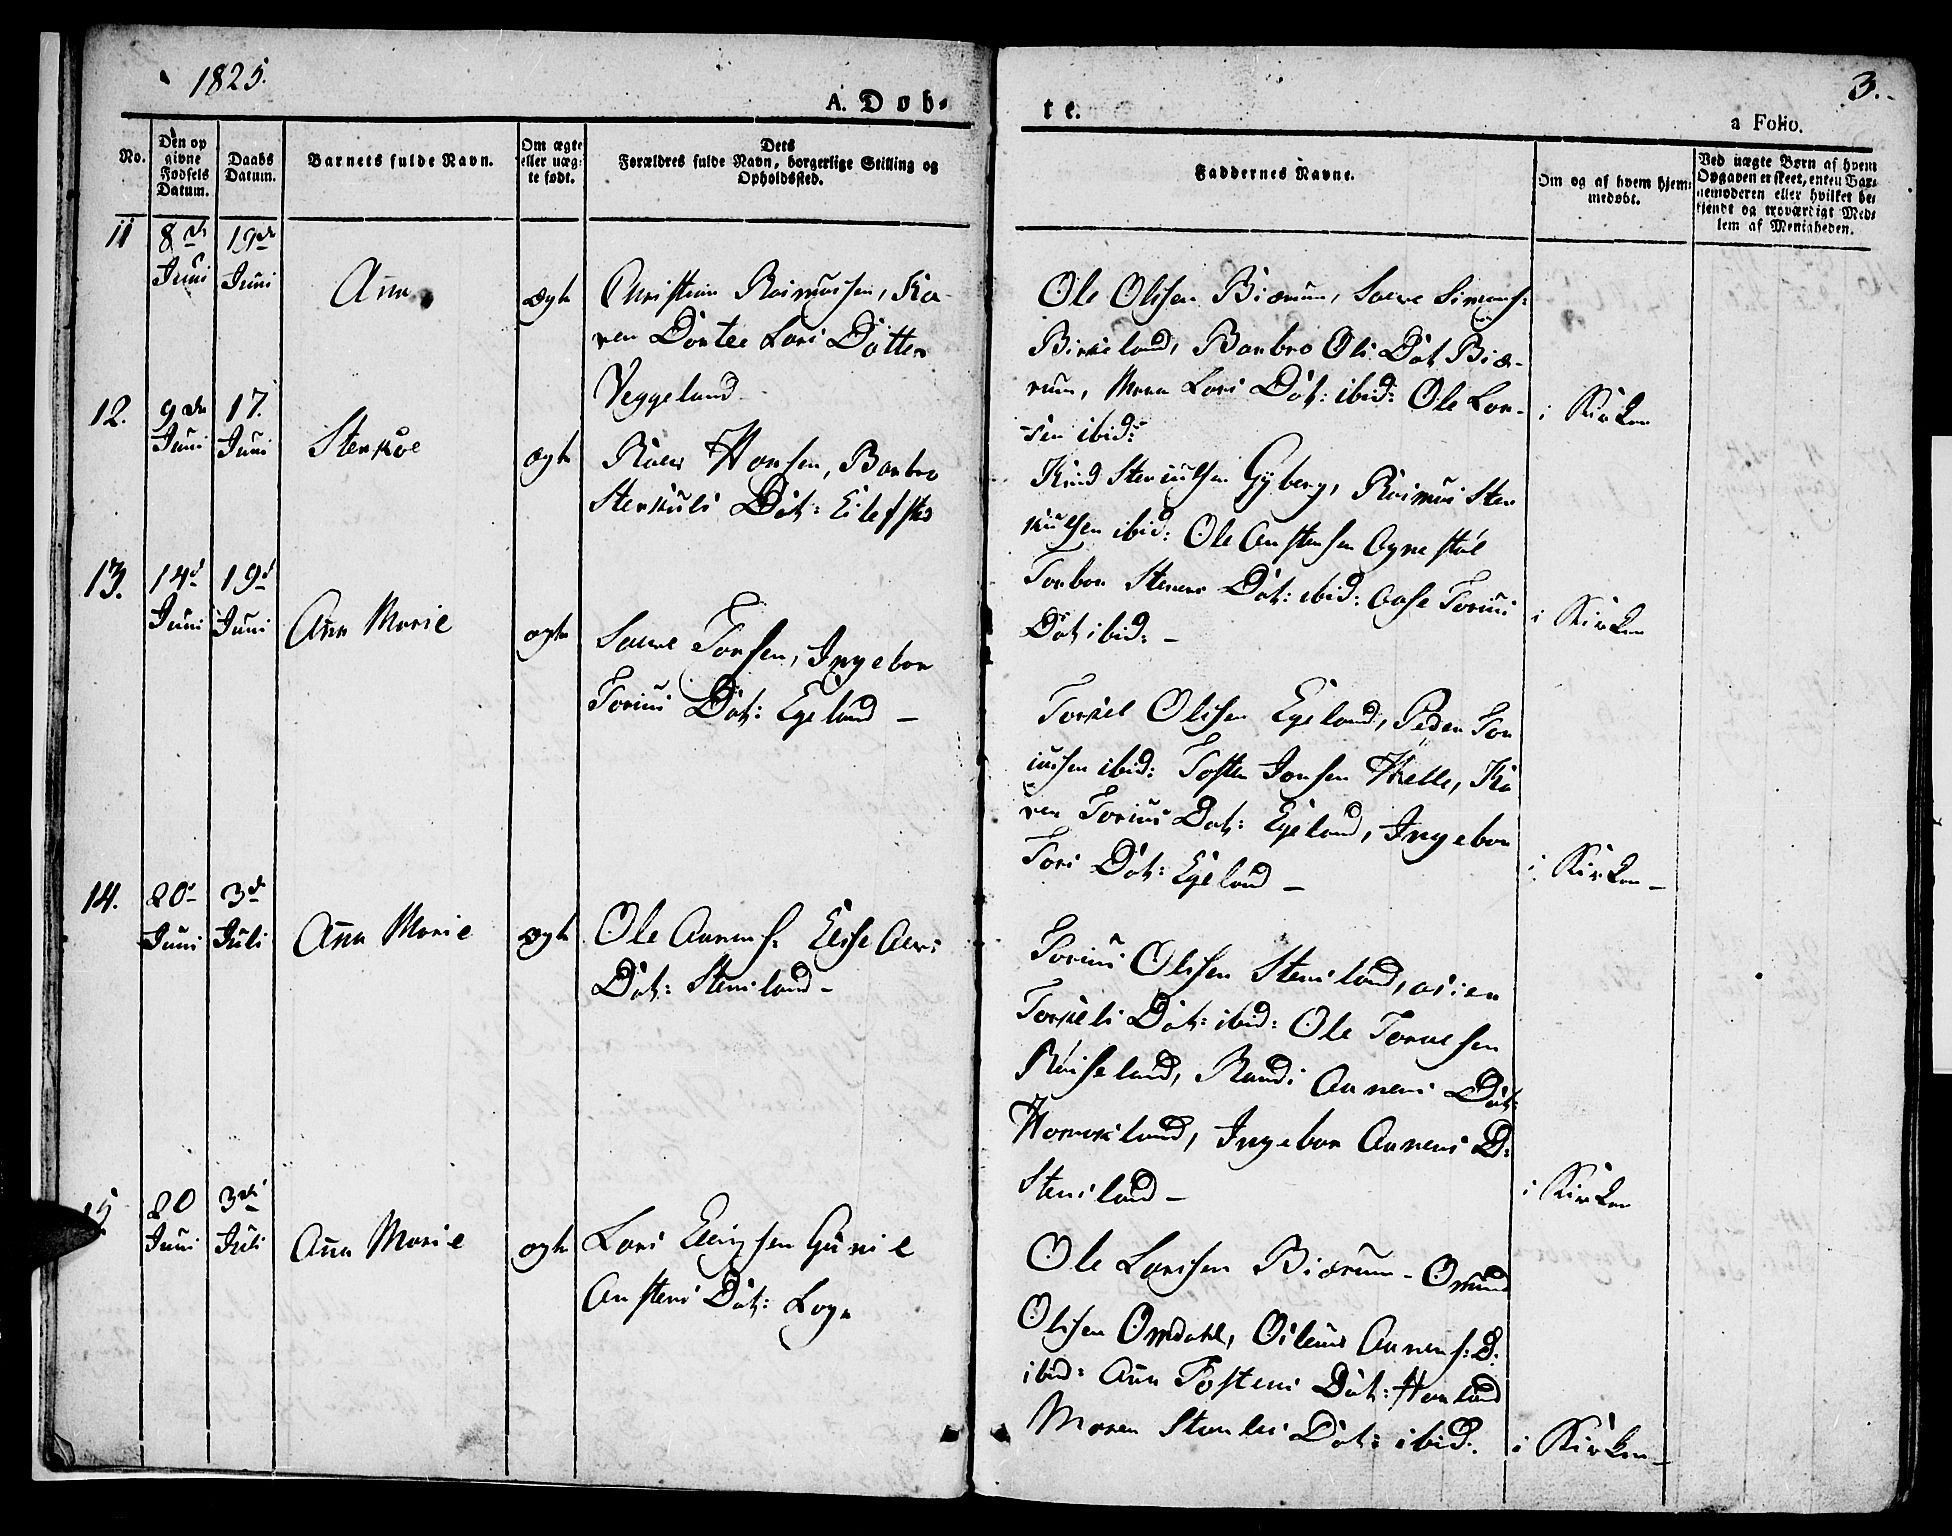 1825.
A. Døb-
te.
3.
a Folio.
No.
Den op
givne
Fødsels
Datum.
Daabs
Datum.
Barnets fulde Navn.
Om ægte
eller uæg-
te født.
Dets
Forældres fulde Navn, borgerlige Stilling og
Opholdssted.
Faddernes Navne.
Om og af hvem hjem-
medøbt.
Ved uægte Børn af hvem
Opgaven er skeet, enten Bar-
nemoderen eller hvilket be-
kjendt og troværdigt Med-
lem af Menigheden.
11
8de
Juni
19de
Juni
Ana
ægte
Christian Rasmussen, Ka-
ren Dortee Lars Datter
Veggeland
Ole Olssen Biærum, Save Simens:
Birkeland, Barbro Ols Dat. Biæ-
rum, Maren Lars Dat: ibid: Ole Lar-
sen ibid:
i Kirken
12.
9de
Juni
17.
Juni
Stenkøe
ægte
Hansen, Barbro
Stenkuls Dat:
Knud Stenkulsen Gyberg, Rasmus Sten
kulsen ibid: Ole Anstensen Ognestøl
Torbor Dat: ibid: Aase
Dat ibid: -
i Kirken
13.
14d
Juni
19d
Juni
Ana Marie
ægte
Torsen, Ingebor
Dat: Egeland -
Torkel Olssen Egeland, Peder Tor
ibid: Tosten Jonsen Helle, Ka
ren Dat: Egeland, Ingebor
Tors Dat: Egeland -
i Kirken -
14.
20d
Juni
3de
Juli
Ana Marie
ægte
Ole Aanens: Elise
Dat: Stensland -
Olssen Stensland,
Torkels Dat: ibid: Ole
Røiseland, Randi Aanens Dat:
Ingebor Aanens D:
Stensland -
i Kirken
15
20
Juni
3de
Juli
Ana Marie
ægte
Lars Ellingsen Gunil
Anstens Dat: Loga
Ole Larssen Biærum - Osmund
Olssen Omdahl, Aanens: D:
ibid: Ana Tostens Dat: Hanland
Maren Dat: ibid:
i Kirken -